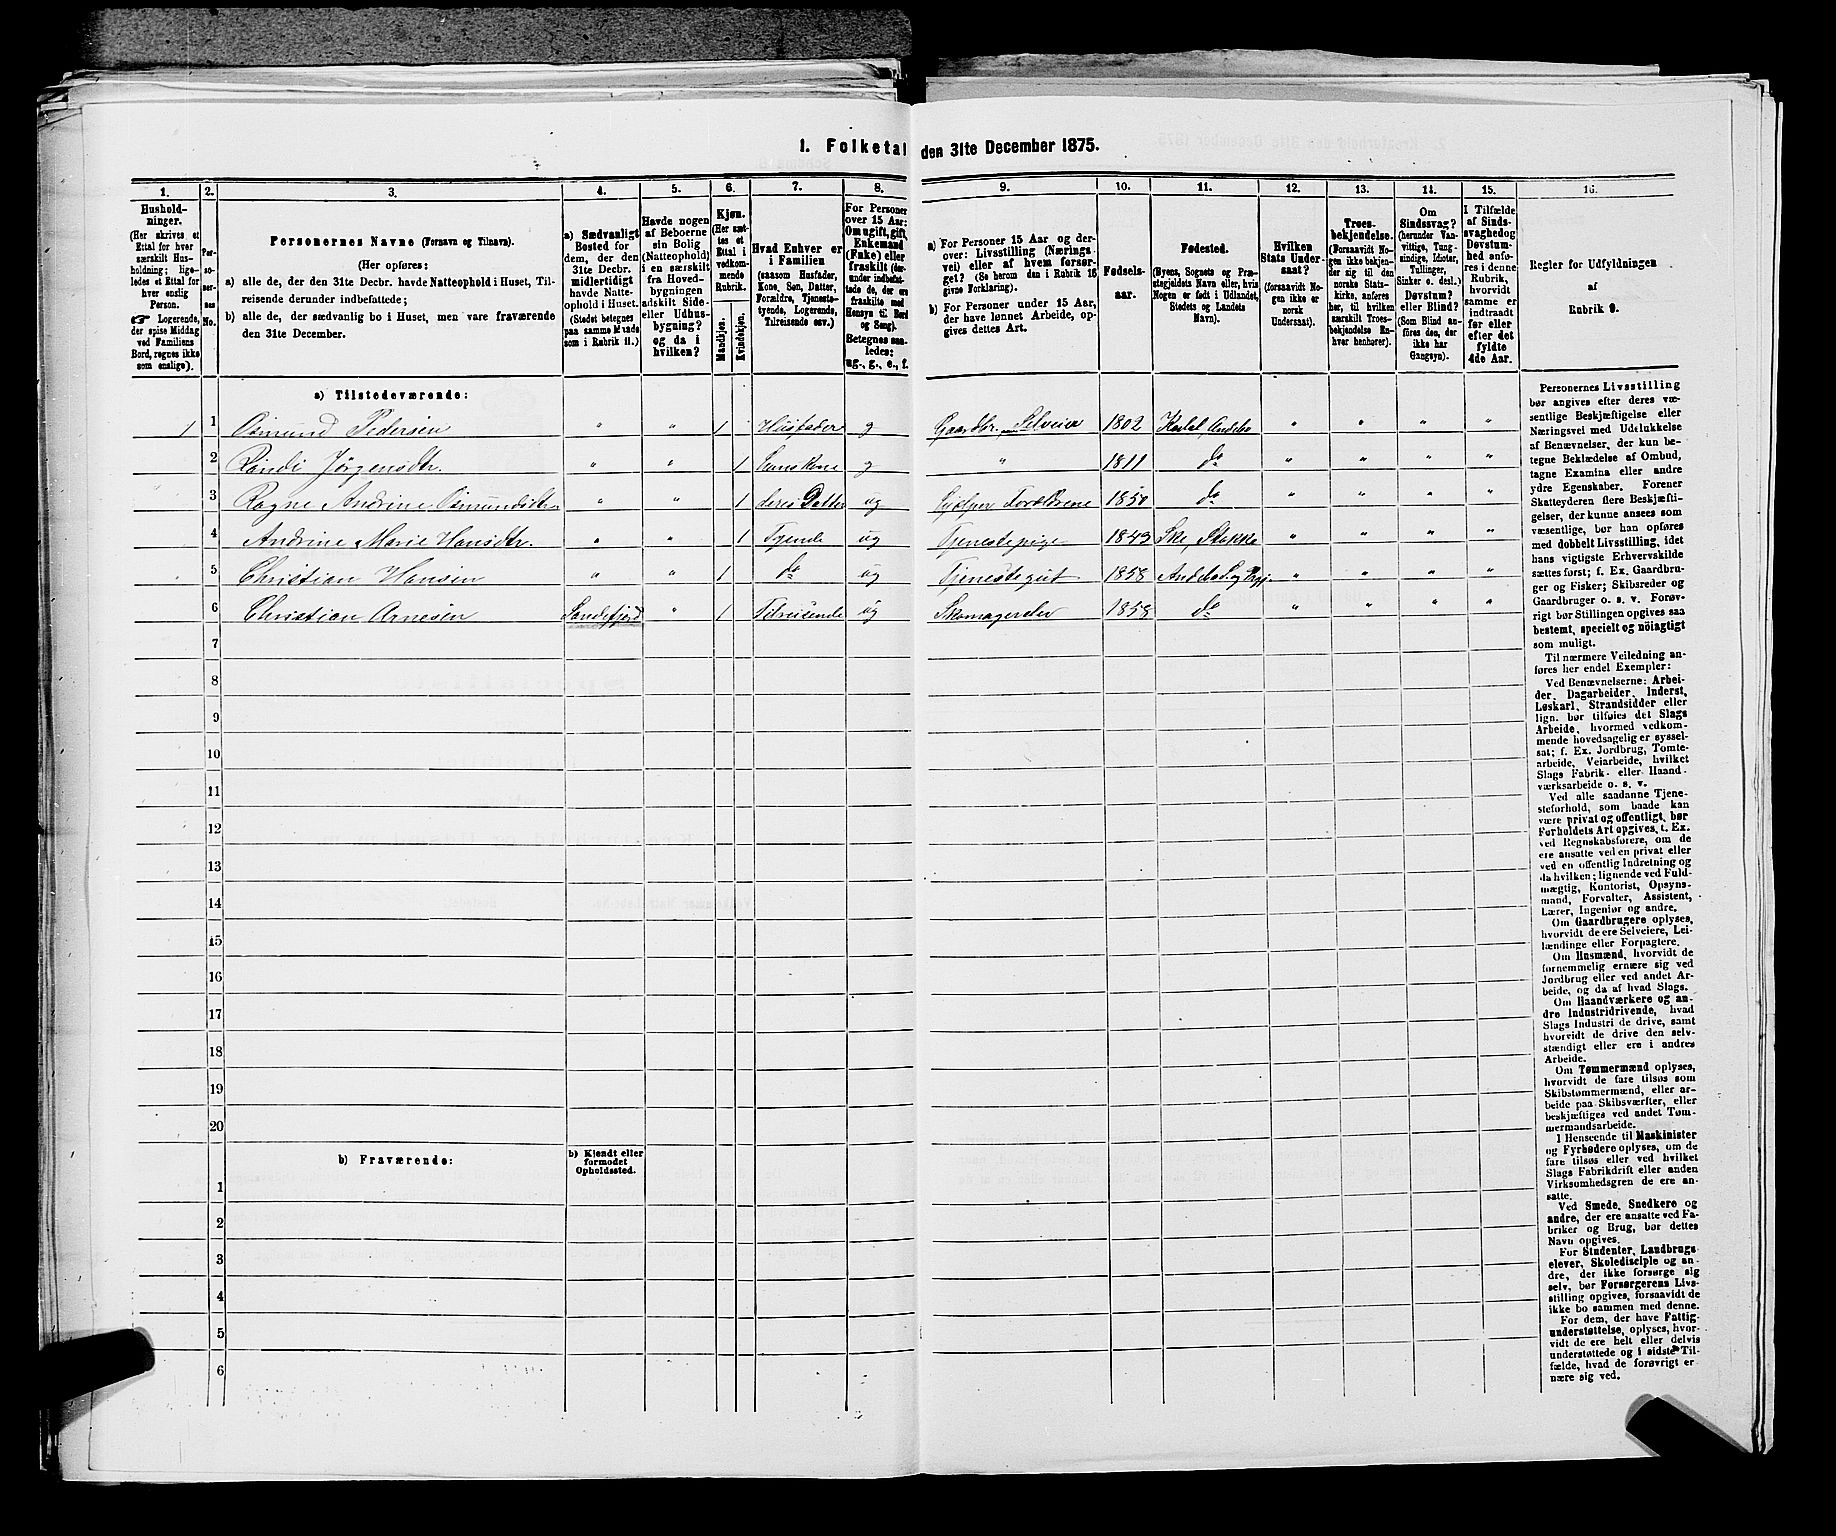 1. Folketal den 31te December 1875.
1.
2.
3.
4.
5.
6.
7.
8.
9.
10.
11.
12.
13.
14.
15.
16.
Hushold-
ninger.
(Her skrives et
Ettal for hver
særskilt Hus-
holdning; lige-
ledes et Ettal for
hver enslig
Person.
☞ Logerende,
der spise Middag
ved Familiens
Bord, regnes ikke
som enslige).
Per-
so-
ner-
nes
No.
Personernes Navne (Fornavn og Tilnavn).
(Her opføres:
a) alle de, der den 31te Decbr. havde Natteophold i Huset, Til-
reisende derunder indbefattede;
b) alle de, der sædvanlig bo i Huset, men vare fraværende
den 31te December.
a) Sædvanligt
Bosted for
dem, der den
31te Decbr.
midlertidigt
havde Natte-
ophold i Huset.
(Stedet betegnes
paa samme Maade
som i Rubrik 11.)
Havde nogen
af Beboerne
sin Bolig
(Natteophold)
i en særskilt
fra Hoved-
bygningen
adskilt Side-
eller Udhus-
bygning?
og da i
hvilken?
Kjøn.
(Her sæt-
tes et
Ettal i
vedkom-
mende
Rubrik.
Mandkjøn.
Kvindekjøn.
Hvad Enhver er
i Familien
(saasom Husfader,
Kone, Søn, Datter,
Forældre, Tjeneste-
tyende, Logerende,
Tilreisende osv.)
For Personer
over 15 Aar:
Om ugift, gift,
Enkemand
(Enke) eller
fraskilt (der-
under indbefat-
tede de, der ere
fraskilte med
Hensyn til Bord
og Seng).
Betegnes saa-
ledes:
ug., g., e., f.
a) For Personer 15 Aar og der-
over: Livsstilling (Nærings-
vei) eller af hvem forsør-
get? (Se herom den i Rubrik 16
givne Forklaring).
b) For Personer under 15 Aar,
der have lønnet Arbeide, op-
gives dettes Art.
Fødsels-
aar.
Fødested.
(Byens, Sognets og Præ-
stegjeldets Navn eller, hvis
Nogen er født i Udlandet,
Stedets og Landets
Navn).
Hvilken
Stats Under-
saat?
(forsaavidt No-
gen ikke er
norsk
Undersaat).
Troes-
bekjendelse.
(Forsaavidt No-
gen ikke bekjen-
der sig til den
norske Stats-
kirke, anføres
her, til hvilken
særskilt Troes-
bekjendelse En-
hver henhører).
Om
Sindssvag?
(herunder Van-
vittige, Tung-
sindige, Idioter,
Tullinger,
Sinker o. desl.)
Døvstum?
eller Blind?
(Som Blind an-
føres den, der
ikke har
Gangsyn).
I Tilfælde
af Sinds-
svaghed og
Døvstum-
hed anfø-
res i denne
Rubrik,
hvorvidt
samme er
indtraadt
før eller
efter det
fyldte
4de Aar.
Regler for Udfyldningen
af
Rubrik 9.
a) Tilstedeværende:
1 1 Osmund Pedersen " " 1 Husfader g Gaardbr. Selveier 1802 Andebo " " " "
2 Randi Jørgensdtr. " " 1 hans Kone g " 1811 do " " " "
3 Ragne Andrine Osmundsdtr " " 1 deres Datter ug Hjælper Forældrene 1850 do " " " "
4 Andrine Marie Hansdtr. " " 1 Tyende ug Tjenestepige 1849 Stokke " " " "
5 Christian Hansen " " 1 do ug Tjenestegut 1858 Andebo S. og Prgj. " " " "
6 Christian Arnesen Sandefjord " 1 Tilreisende ug Skomagerelev 1858 do " " " "
7
8
9
10
11
12
13
14
15
16
17
18
19
20
b) Fraværende:
b) Kjendt eller
formodet
Opholdssted.
1
2
3
4
5
6
Personernes Livsstilling
bør angives efter deres væ-
sentlige Beskjæftigelse eller
Næringsvei med Udelukkelse
af Benævnelser, der kun be-
tegne Beklædelse af Ombud,
tagne Examina eller andre
ydre Egenskaber. Forener
Skatteyderen flere Beskjæfti-
gelser, der kunne ansees som
væsentlige, bør han opføres
med dobbelt Livsstilling, idet
hans vigtigste Erhvervskilde
sættes først; f. Ex. Gaardbru-
ger og Fisker; Skibsreder og
Gaardbruger o. s. v. Forøv-
rigt bør Stillingen opgives saa
bestemt, specielt og nöiagtigt
som muligt.
Til nærmere Veiledning an-
føres her endel Exempler:
Ved Benævnelserne: Arbei-
der, Dagarbeider, Inderst,
Løskarl, Strandsidder eller
lign. bør tilføies det Slags
Arbeide, hvormed vedkom-
mende hovedsagelig er syssel-
sat; f. Ex. Jordbrug, Tomte-
arbeide, Veiarbeide, hvilket
Slags Fabrik- eller Haand-
værksarbeide o. s. v.
Ved alle saadanne Tjene-
steforhold, som baade kan
være privat og offentligt, bør
Forholdets Art opgives, t. Ex.
ved Regnskabsførere, om de
ere ansatte ved en privat eller
ved en offentlig Indretning og
da hvilken; lignende ved Fuld-
mægtig, Kontorist, Opsyns-
mand, Forvalter, Assistent,
Lærer, Ingeniør og andre.
Om Gaardbrugere oplyses,
hvorvidt de ere Selveiere, Lei-
lændinge eller Forpagtere.
Om Husmænd, hvorvidt de
fornemmelig ernære sig ved
Jordbrug eller ved andet Ar-
beide, og da af hvad Slags.
Om Haandværkere og an-
dre Industridrivende, hvad
Slags Industri de drive, samt
hvorvidt de drive den selv-
stændigt eller ere i andres
Arbeide.
Om Tømmermænd oplyses,
hvorvidt de fare tilsøs som
Skibstømmermænd, eller ar-
beide paa Skibsværfter, eller
beskjæftiges ved andet Tøm-
mermandsarbeide.
I Henseende til Maskinister
og Fyrbødere oplyses, om de
fare tilsøs eller ved hvilket
Slags Fabrikdrift eller anden
Virksomhedsgren de ere an-
satte.
Ved Smede, Snedkere og
andre, der ere ansatte ved Fa-
briker og Brug, bør dettes
Navn opgives.
For Studenter, Landbrugs-
elever, Skoledisciple og an-
dre, der ikke forsørge sig
selv, bør Forsørgerens Livs-
stilling opgives, forsaavidt de
ikke bo sammen med denne.
For dem, der have Fattig-
understøttelse, oplyses, hvor-
vidt de ere helt eller delvis
understøttede og i sidste Til-
fælde, hvad de forøvrigt er-
nære sig ved.